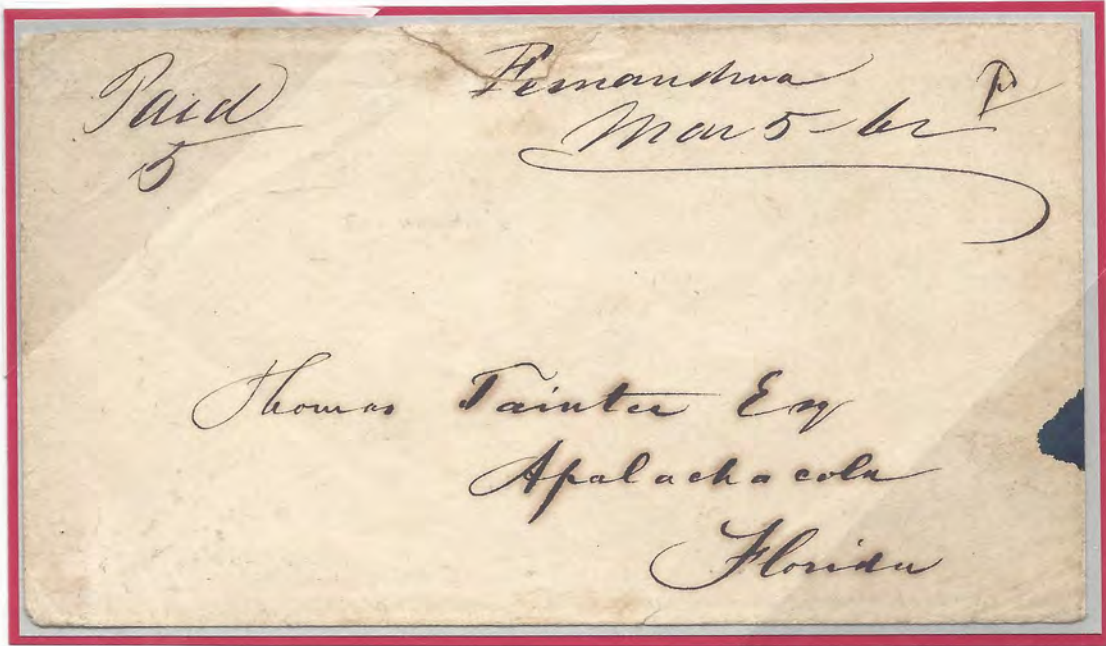 Paid
5
Fernandina
Mar 5-62
Thomas Tainter Esq
Apalachacola
Florida